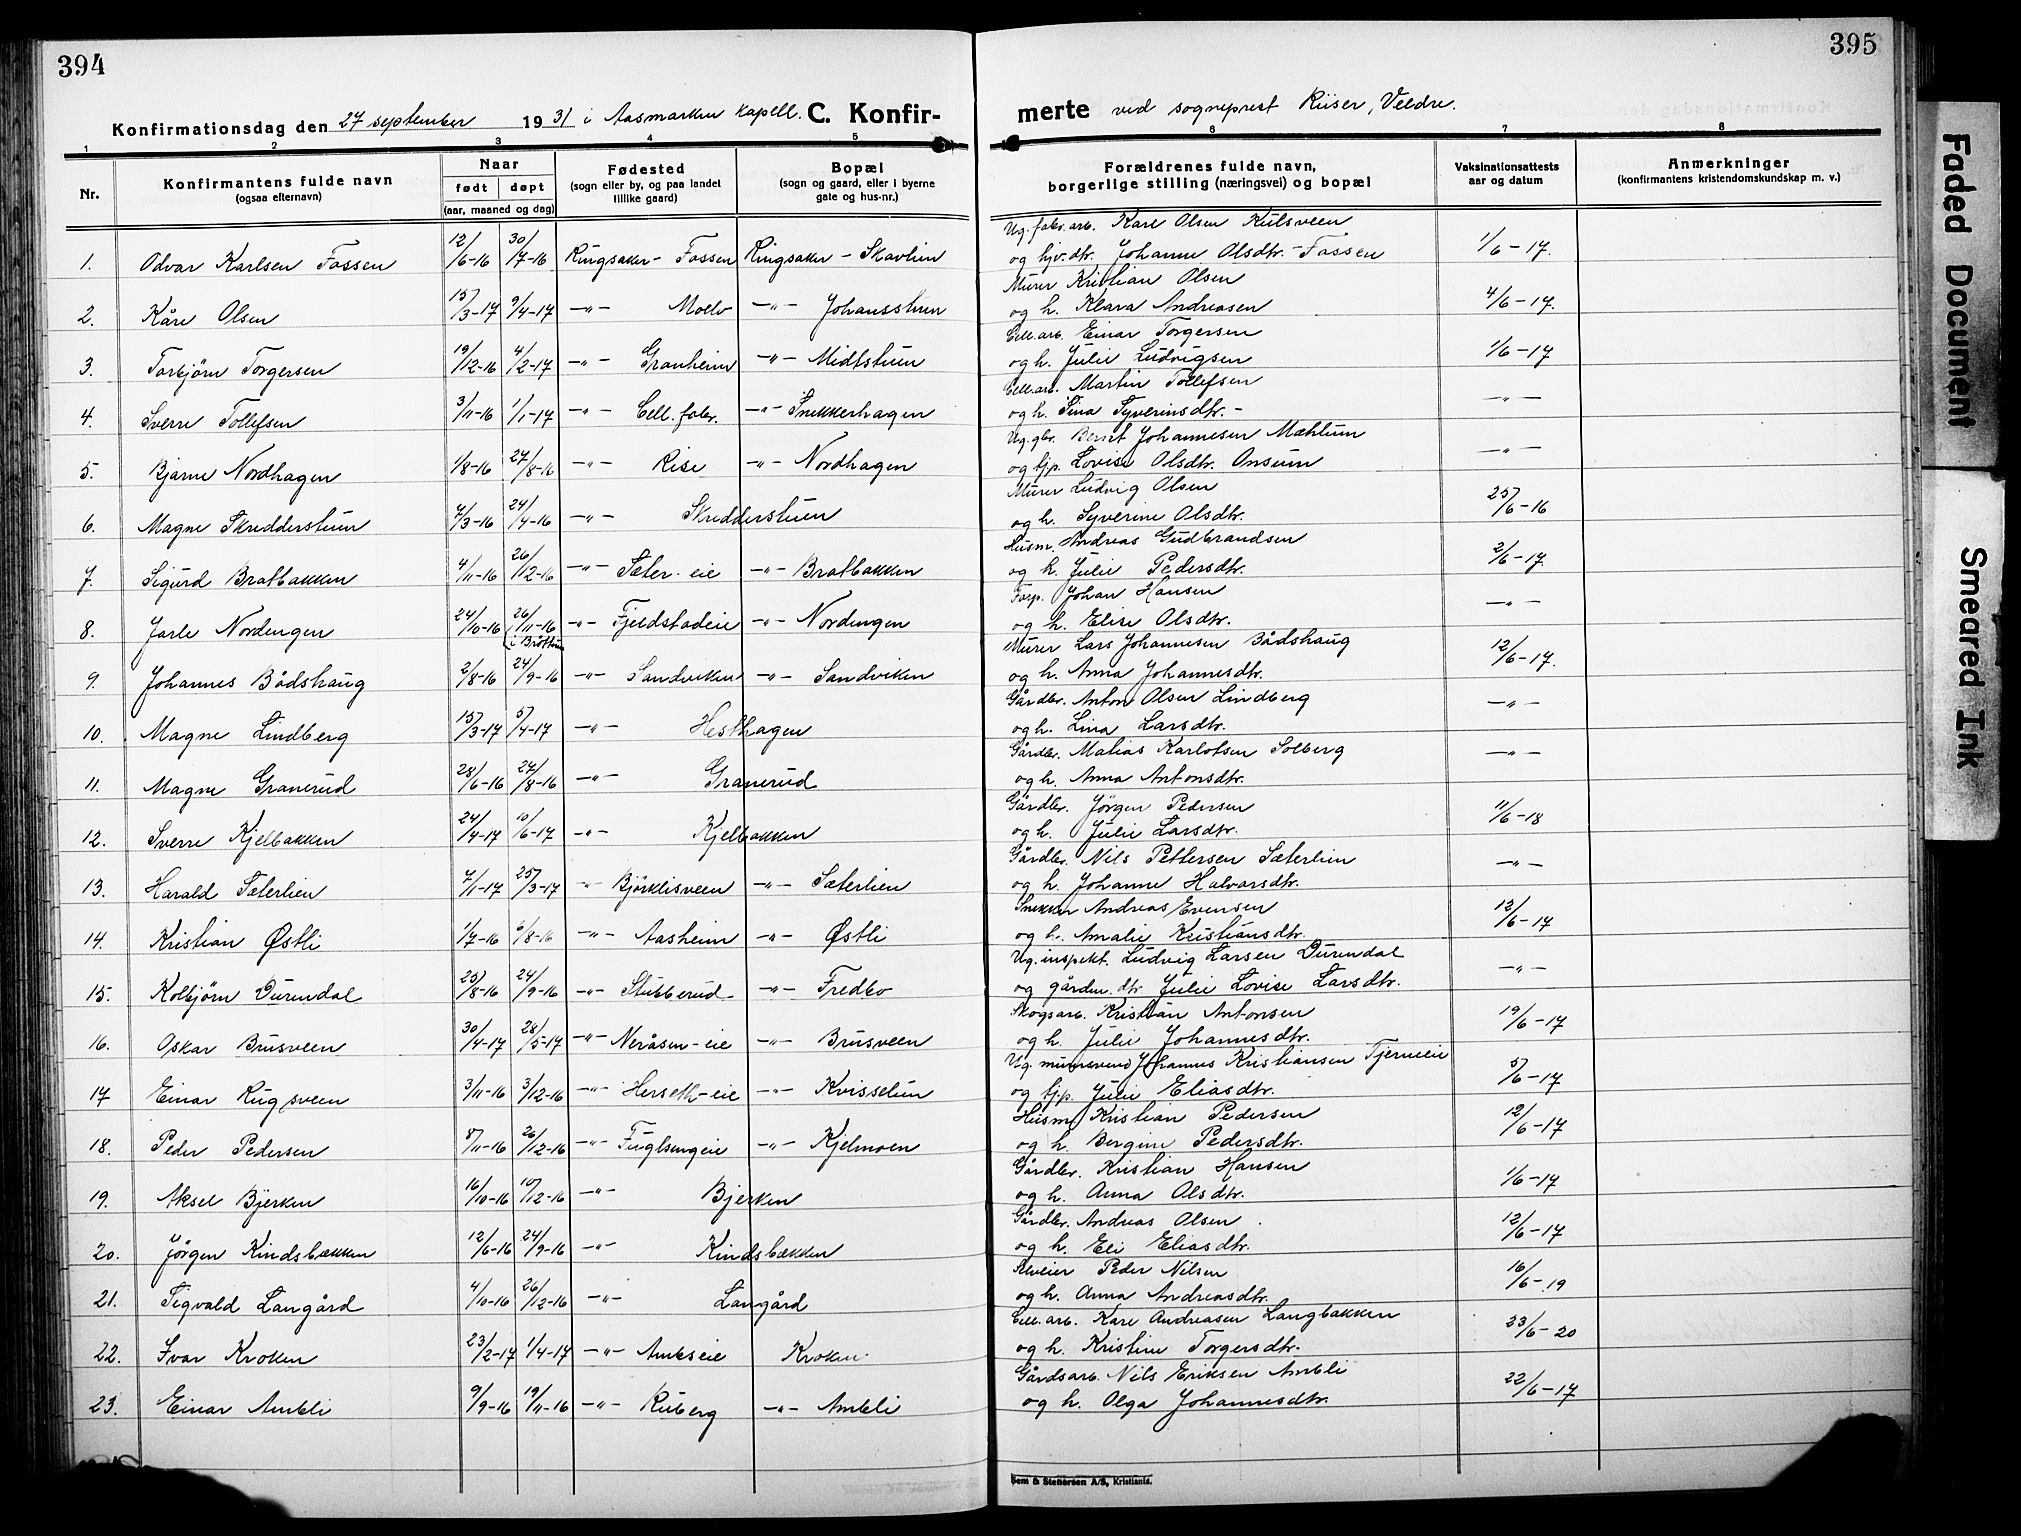 394
395
Konfirmationsdag den 27 september 1931 i Aasmarken kapell. C. Konfir-
merte ved sogneprest Riiser, Veldre.
1 2 3 4 5 6 7 8
Nr.
Konfirmantens fulde navn
(ogsaa efternavn)
Naar
født døpt
(aar, maaned og dag)
Fødested
(sogn eller by, og paa landet
tillike gaard)
Bopæl
(sogn og gaard, eller i byerne
gate og hus-nr.)
Forældrenes fulde navn,
borgerlige stilling (næringsvei) og bopæl
Vaksinationsattests
aar og datum
Anmerkninger
(konfirmantens kristendomskundskap m. v.)
Ug. fabr. arb. Kare Olsen Kulsveen
1. Odvar Karlsen Fossen 12/6-16 30/7-16 Ringsaker - Fossen Ringsaker - Skavlien og hjv. dtr. Johanne Olsdtr. - Fossen 1/6-17.
Murer Kristian Olsen
2. Kåre Olsen 15/3-17 9/4-17 -"- Moelv -"- Johansstuen og h. Klara Andreasen 4/6-17.
Cell. arb. Einar Torgersen
3. Torbjørn Torgersen 19/12-16 4/2-17 -"- Granheim -"- Midtstuen og h. Julie Ludvigsen 1/6-17
Cell. arb. Martin Tollefsen
4. Sverre Tollefsen 3/11-16 1/1-17 -"- Cell. fabr. -"- Snekkerhagen og h. Sina Syverinsdtr. - -"-
Ug. gbr. Bernt Johannesen Mæhlum
5. Bjarne Nordhagen 1/8-16 27/8-16 -"- Rise -"- Nordhagen og bjp. Lovise Olsdtr. Onsum -"-
Murer Ludvig Olsen
6. Magne Skredderstuen 7/3-16 24/4-16 -"- Skredderstuen og h. Syverine Olsdtr. 25/6-16
Husm. Andreas Gudbrandsen
7. Sigurd Bratbakken 4/11-16 26/12-16 -"- Sæter-eie -"- Bratbakken og h. Julie Pedersdtr. 2/6-17.
Forp. Johan Hansen
8. Jarle Nordengen 24/10-16 26/11-16 (i Brøttum -"- Fjeldstadeie -"- Nordengen og h. Elise Olsdtr. -"-
Murer Lars Johannesen Bådshaug
9. Johannes Bådshaug 2/8-16 24/9-16 -"- Sandviken -"- Sandviken og h. Anna Johannesdtr. 12/6-17.
Gårdbr. Anton Olsen Lindberg
10. Magne Lindberg 15/3-17 5/4-17 -"- Hesthagen og h. Lina Larsdtr. -"-
Gårdbr. Matias Karlotsen Solberg
11. Magne Granerud 28/6-16 27/8-16 -"- Granerud og h. Anna Antonsdtr. -"-
Gårdbr. Jørgen Pedersen
12. Sverre Kjelbakken 24/4-17 10/6-17 -"- Kjelbakken og h. Julie Larsdtr. 11/6-18
Gårdbr. Nils Pettersen Sæterlien
13. Harald Sæterlien 7/1-17 25/3-17 -"- Bjørklisveen -"- Sæterlien og h. Johanne Halvarsdtr. -"-
Snekker Andreas Evensen
14. Kristian Østli 1/7-16 6/8-16 -"- Aasheim -"- Østli og h. Amalie Kristiansdtr. 12/6-17
Ug. inspekt. Ludvig Larsen Durendal
15. Kolbjørn Durendal 25/8-16 24/9-16 -"- Stubberud -"- Fredbo og gårdm. dtr Julie Lovise Larsdtr. -"-
Skogsarb. Kristian Antonsen
16. Oskar Brusveen 30/4-17 28/5-17 -"- Neråsen-eie -"- Brusveen og h. Julie Johannesdtr. 19/6-17
Ug. murersvend Johannes Kristiansen Tjerneie
17 Einar Rugsveen 3/11-16 3/12-16 -"- Herseth-eie -"- Kvisselun og bjp. Julie Eliasdtr. 5/6-17
Husm. Kristian Pedersen
18. Peder Pedersen 5/11-16 26/12-16 -"- Fuglsengeie -"- Kjelmoen og h. Bergine Pedersdtr. 12/6-17
Gårdbr. Kristian Hansen
19. Aksel Bjerken 16/10-16 10/12-16 -"- Bjerken og h. Anna Olsdtr. 1/6-17
Gårdbr. Andreas Olsen
20. Jørgen Kindsbækken 12/6-16 24/9-16 -"- Kindsbækken og h. Eli Eliasdtr. 12/6-17
Selveier Peder Nilsen
21. Sigvald Langård 4/10-16 26/12-16 -"- Langård og h. Anna Andreasdtr. 16/6-19
Cell. arb. Kare Andreasen Langbakken
22. Ivar Kroken 23/2-17 1/4-17 -"- Amliseie Kroken og h. Kristine Torgersdtr. 23/6-20
Gårdsarb. Nils Eriksen Ambli
23. Einar Ambli 9/9-16 19/11-16 -"- Ruberg -"- Ambli og h. Olga Johannesdtr. 22/6-17
Sem & Stenersen A/S, Kristiania.
Faded Document
Smeared Ink